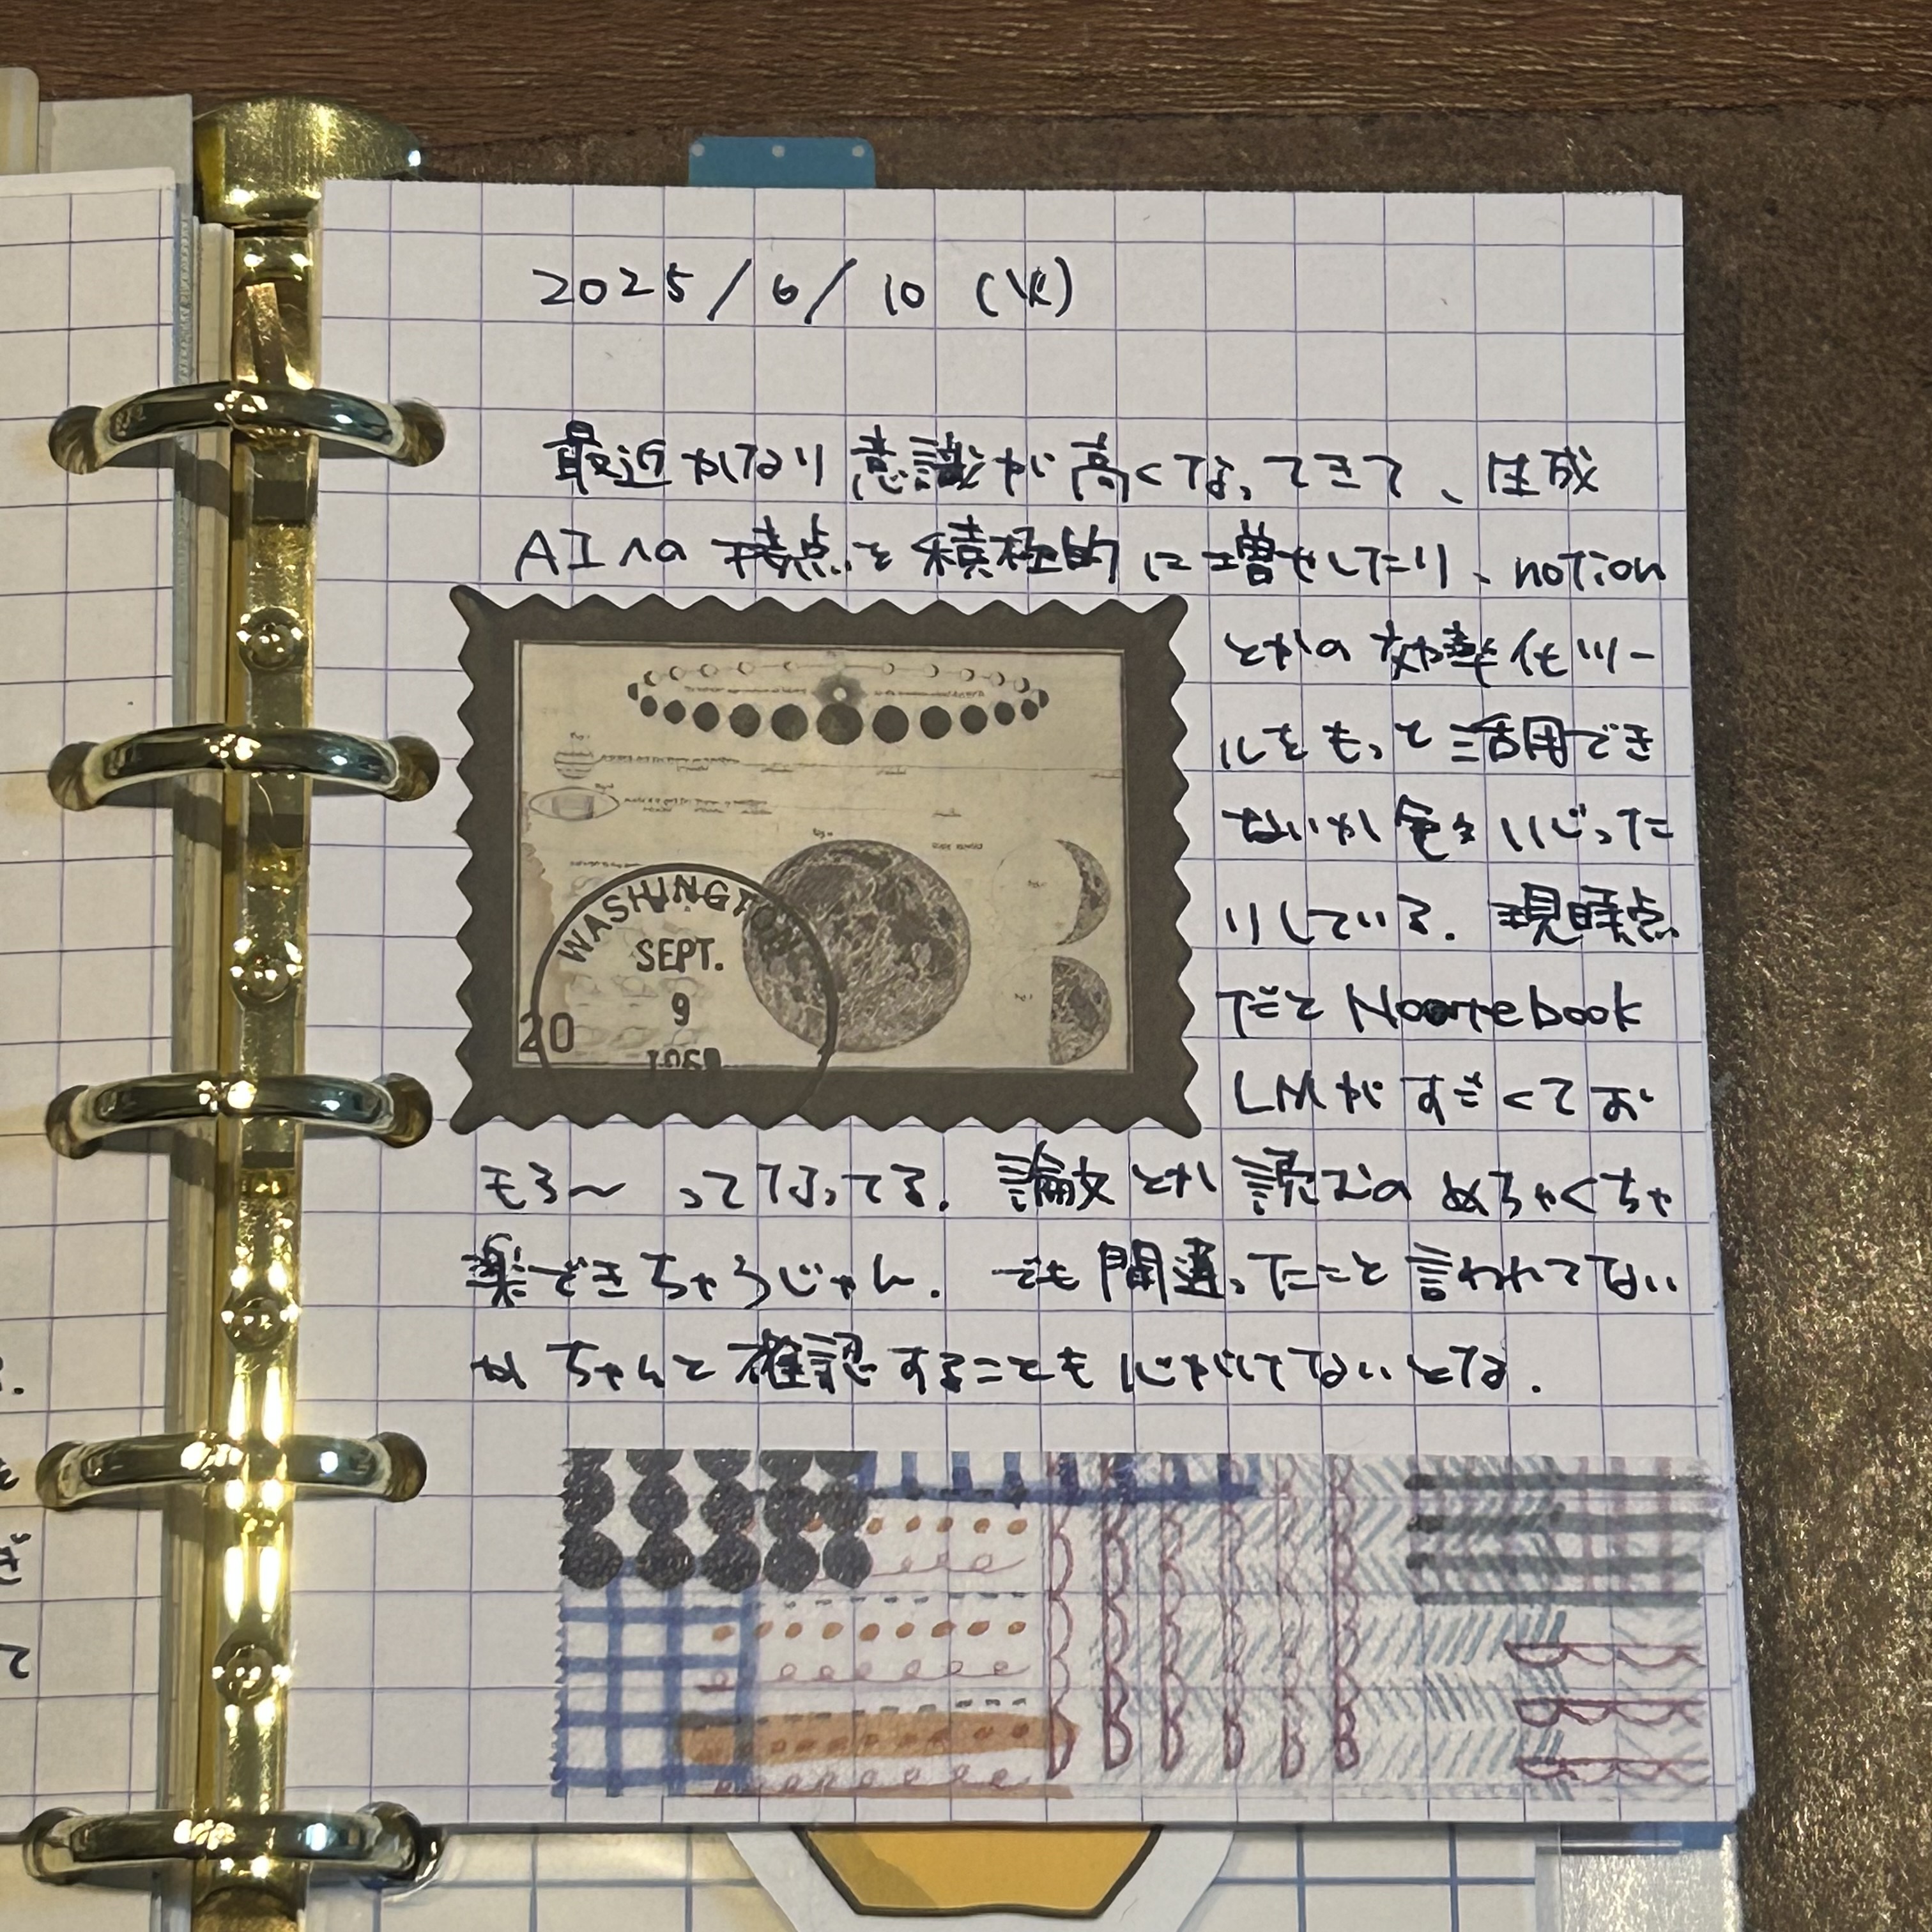 2025/6/10 (火)
最近かなり意識が高くなってきて、生成
AIへの接点を積極的に増やしたり、notion
とかの効率化ツー
ルをもっと活用でき
ないか色々いじった
りしている. 現時点
だと NootebooK
LMがすごくてお
もろ〜ってなってる. 論文とか読むのめちゃくちゃ
楽できちゃうじゃん. でも間違ったこと言われてない
かちゃんと確認することも心がけてないとな.
WASHINGTON
SEPT.
9
20